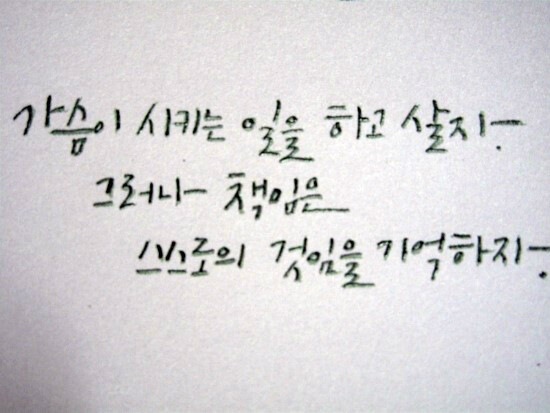 가슴이 시키는 일을 하고 살자.
그러나 책임은
스스로의 것임을 기억하자.